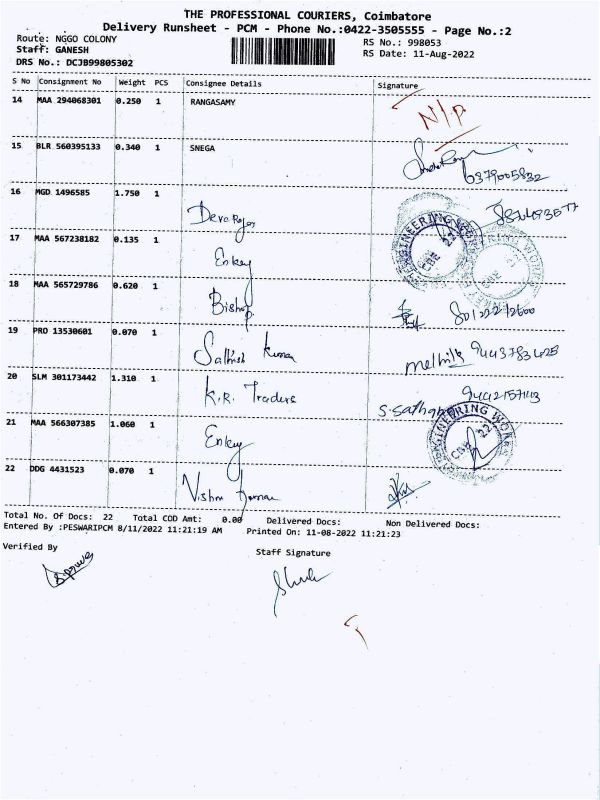 THE PROFESSIONAL COURIERS, Coimbatore
Delivery Runsheet - PCM - Phone No.:0422-3505555 - Page No.:2
Route: NGGO COLONY RS No.: 998053
Staff: GANESH RS Date: 11-Aug-2022
DRS No.: DCJB99805302
S No Consignment No Weight PCS Consignee Details Signature
14 MAA 294068301 0.250 1 RANGASAMY N/P
15 BLR 560395133 0.340 1 SNEGA
6379005832
16 MGD 1496585 1.750 1 Devaraj
17 MAA 567238182 0.135 1 Enkey
18 MAA 565729786 0.620 1 Bishop
19 PRO 13530601 0.070 1 Sathish Kumar
20 SLM 301173442 1.310 1 K.R. Traders
21 MAA 566307385 1.060 1 Enkey
22 DDG 4431523 0.070 1 Vishnu Kumar
Total No. Of Docs: 22 Total COD Amt: 0.00 Delivered Docs: Non Delivered Docs:
Entered By :PESWARIPCM 8/11/2022 11:21:19 AM Printed On: 11-08-2022 11:21:23
Verified By Staff Signature